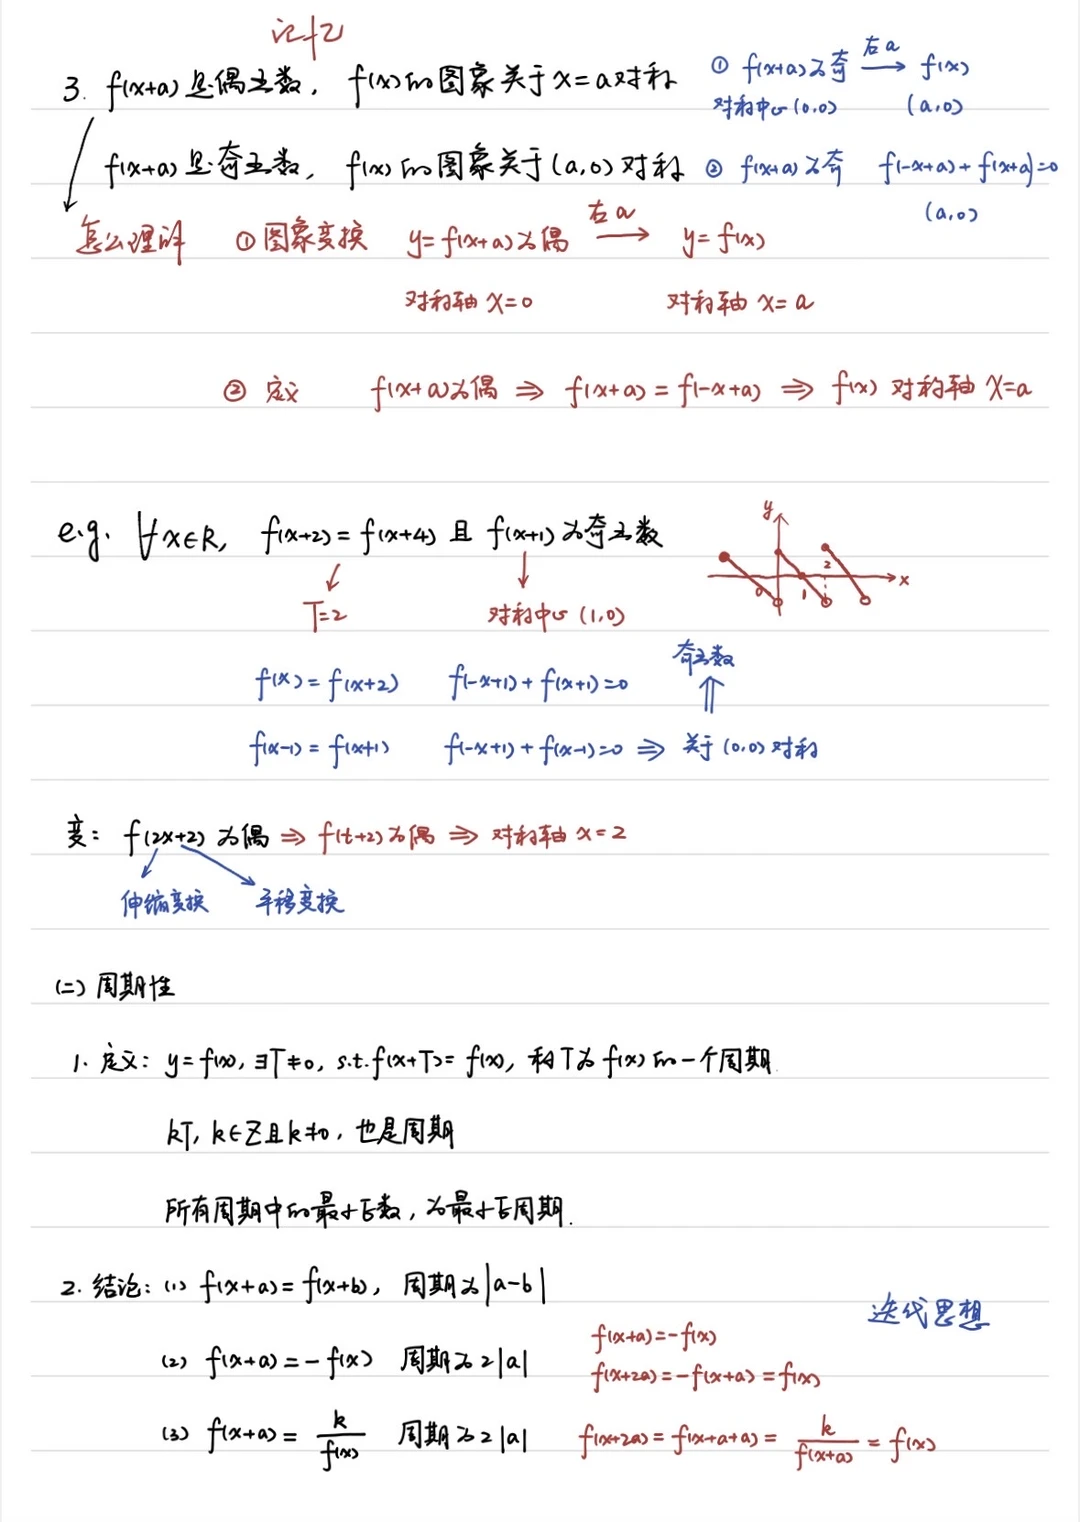 记忆
3. f(x+a)是偶函数, f(x)的图象关于x=a对称 ① f(x+a)为奇 右a→ f(x)
对称中心(0,0) (a,0)
f(x+a)是奇函数, f(x)的图象关于(a,0)对称 ② f(x+a)为奇 f(-x+a)+f(x+a)=0
(a,0)
怎么理解 ①图象变换 y=f(x+a)为偶 右a→ y=f(x)
对称轴 x=0 对称轴 x=a
② 定义 f(x+a)为偶 ⇒ f(x+a)=f(-x+a) ⇒ f(x) 对称轴 x=a
e.g. ∀x∈R, f(x+2)=f(x+4) 且 f(x+1)为奇函数
y x 0 1 2
T=2 对称中心 (1,0)
f(x)=f(x+2) f(-x+1)+f(x+1)=0 奇函数
f(x-1)=f(x+1) f(-x+1)+f(x-1)=0 ⇒ 关于(0,0)对称
变: f(2x+2)为偶 ⇒ f(t+2)为偶 ⇒ 对称轴 x=2
伸缩变换 平移变换
(二) 周期性
1. 定义: y=f(x), ∃T≠0, s.t. f(x+T)=f(x), 称T为f(x)的一个周期
kT, k∈Z且k≠0, 也是周期
所有周期中的最小正数, 为最小正周期.
2. 结论: (1) f(x+a)=f(x+b), 周期为|a-b|
迭代思想
(2) f(x+a)=-f(x) 周期为2|a| f(x+a)=-f(x)
f(x+2a)=-f(x+a)=f(x)
(3) f(x+a)=k/f(x) 周期为2|a| f(x+2a)=f(x+a+a)=k/f(x+a)=f(x)